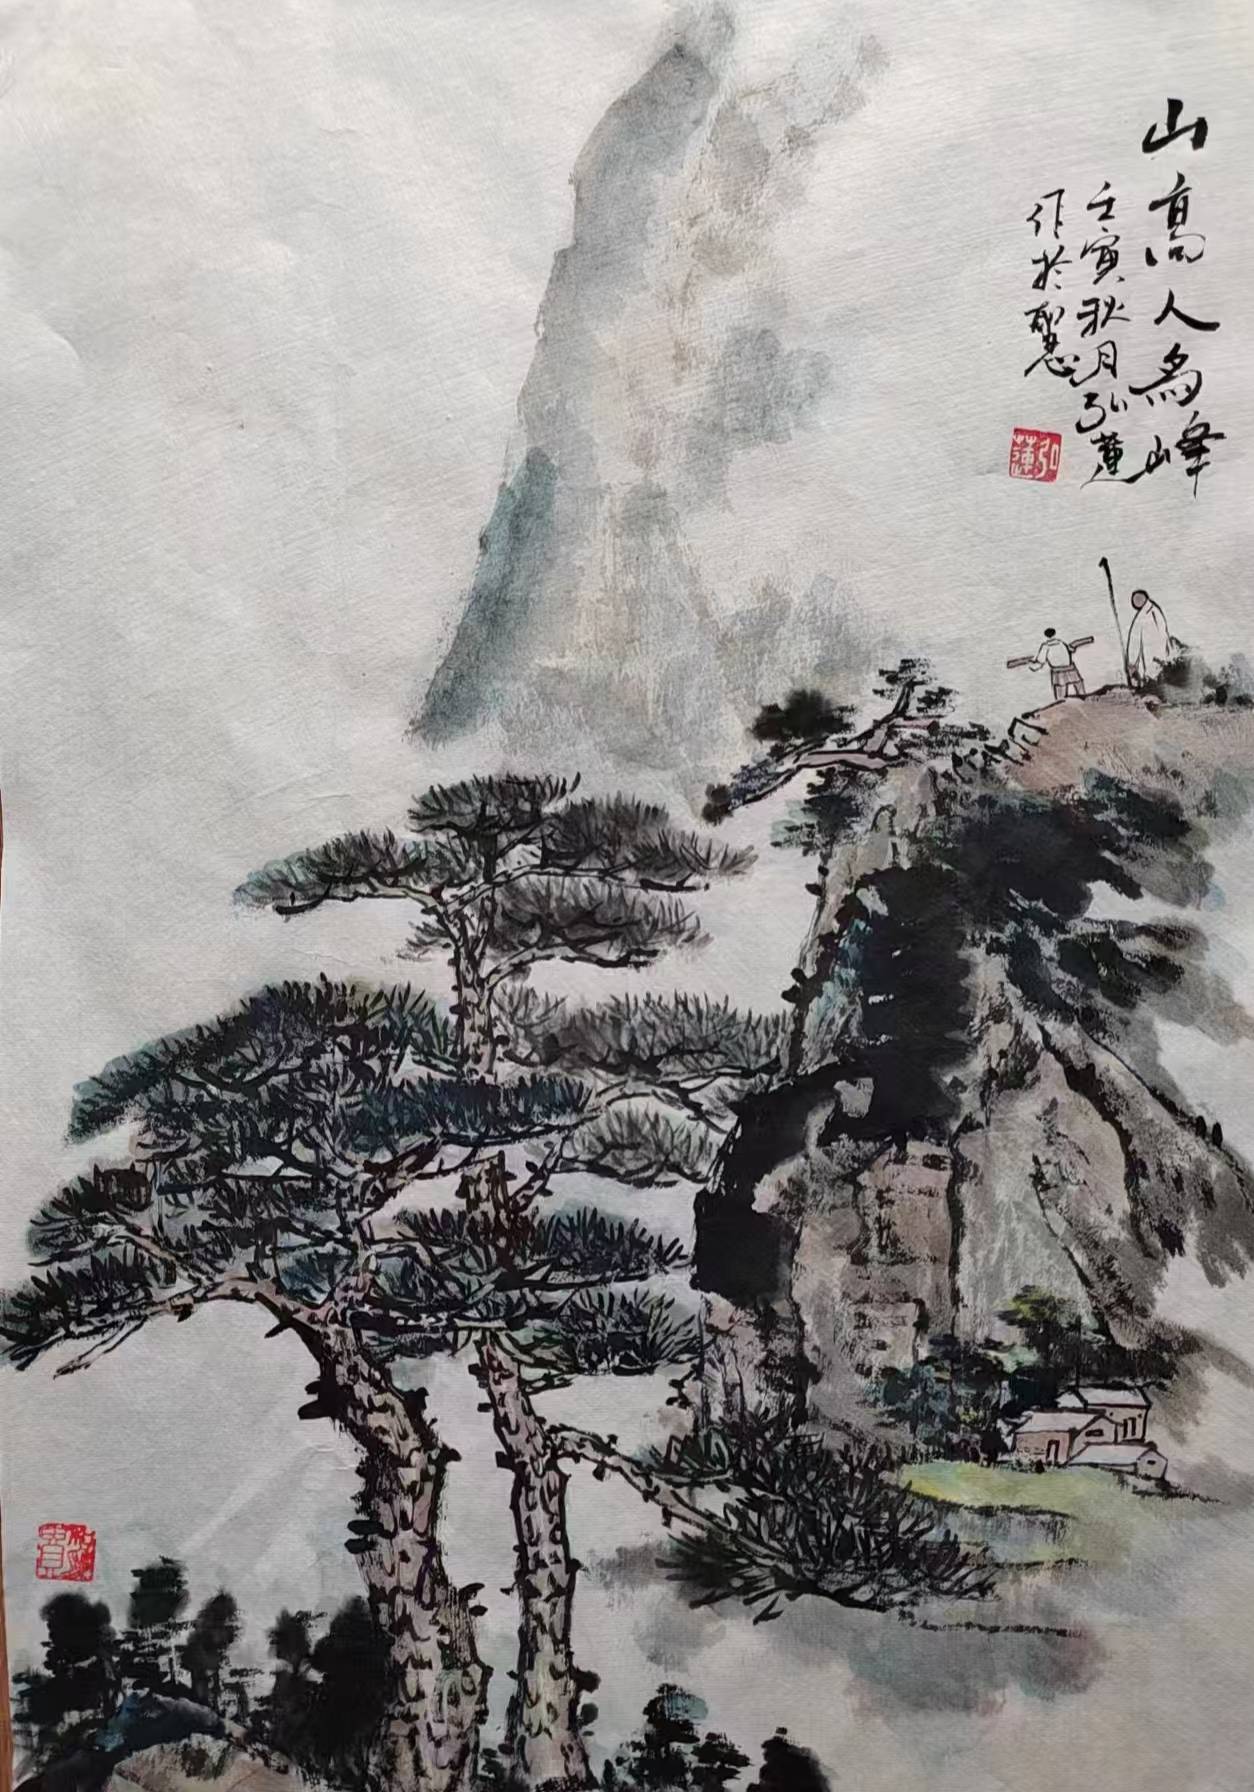 山高人為峰
壬寅秋月弘蓮
作於慧
弘蓮